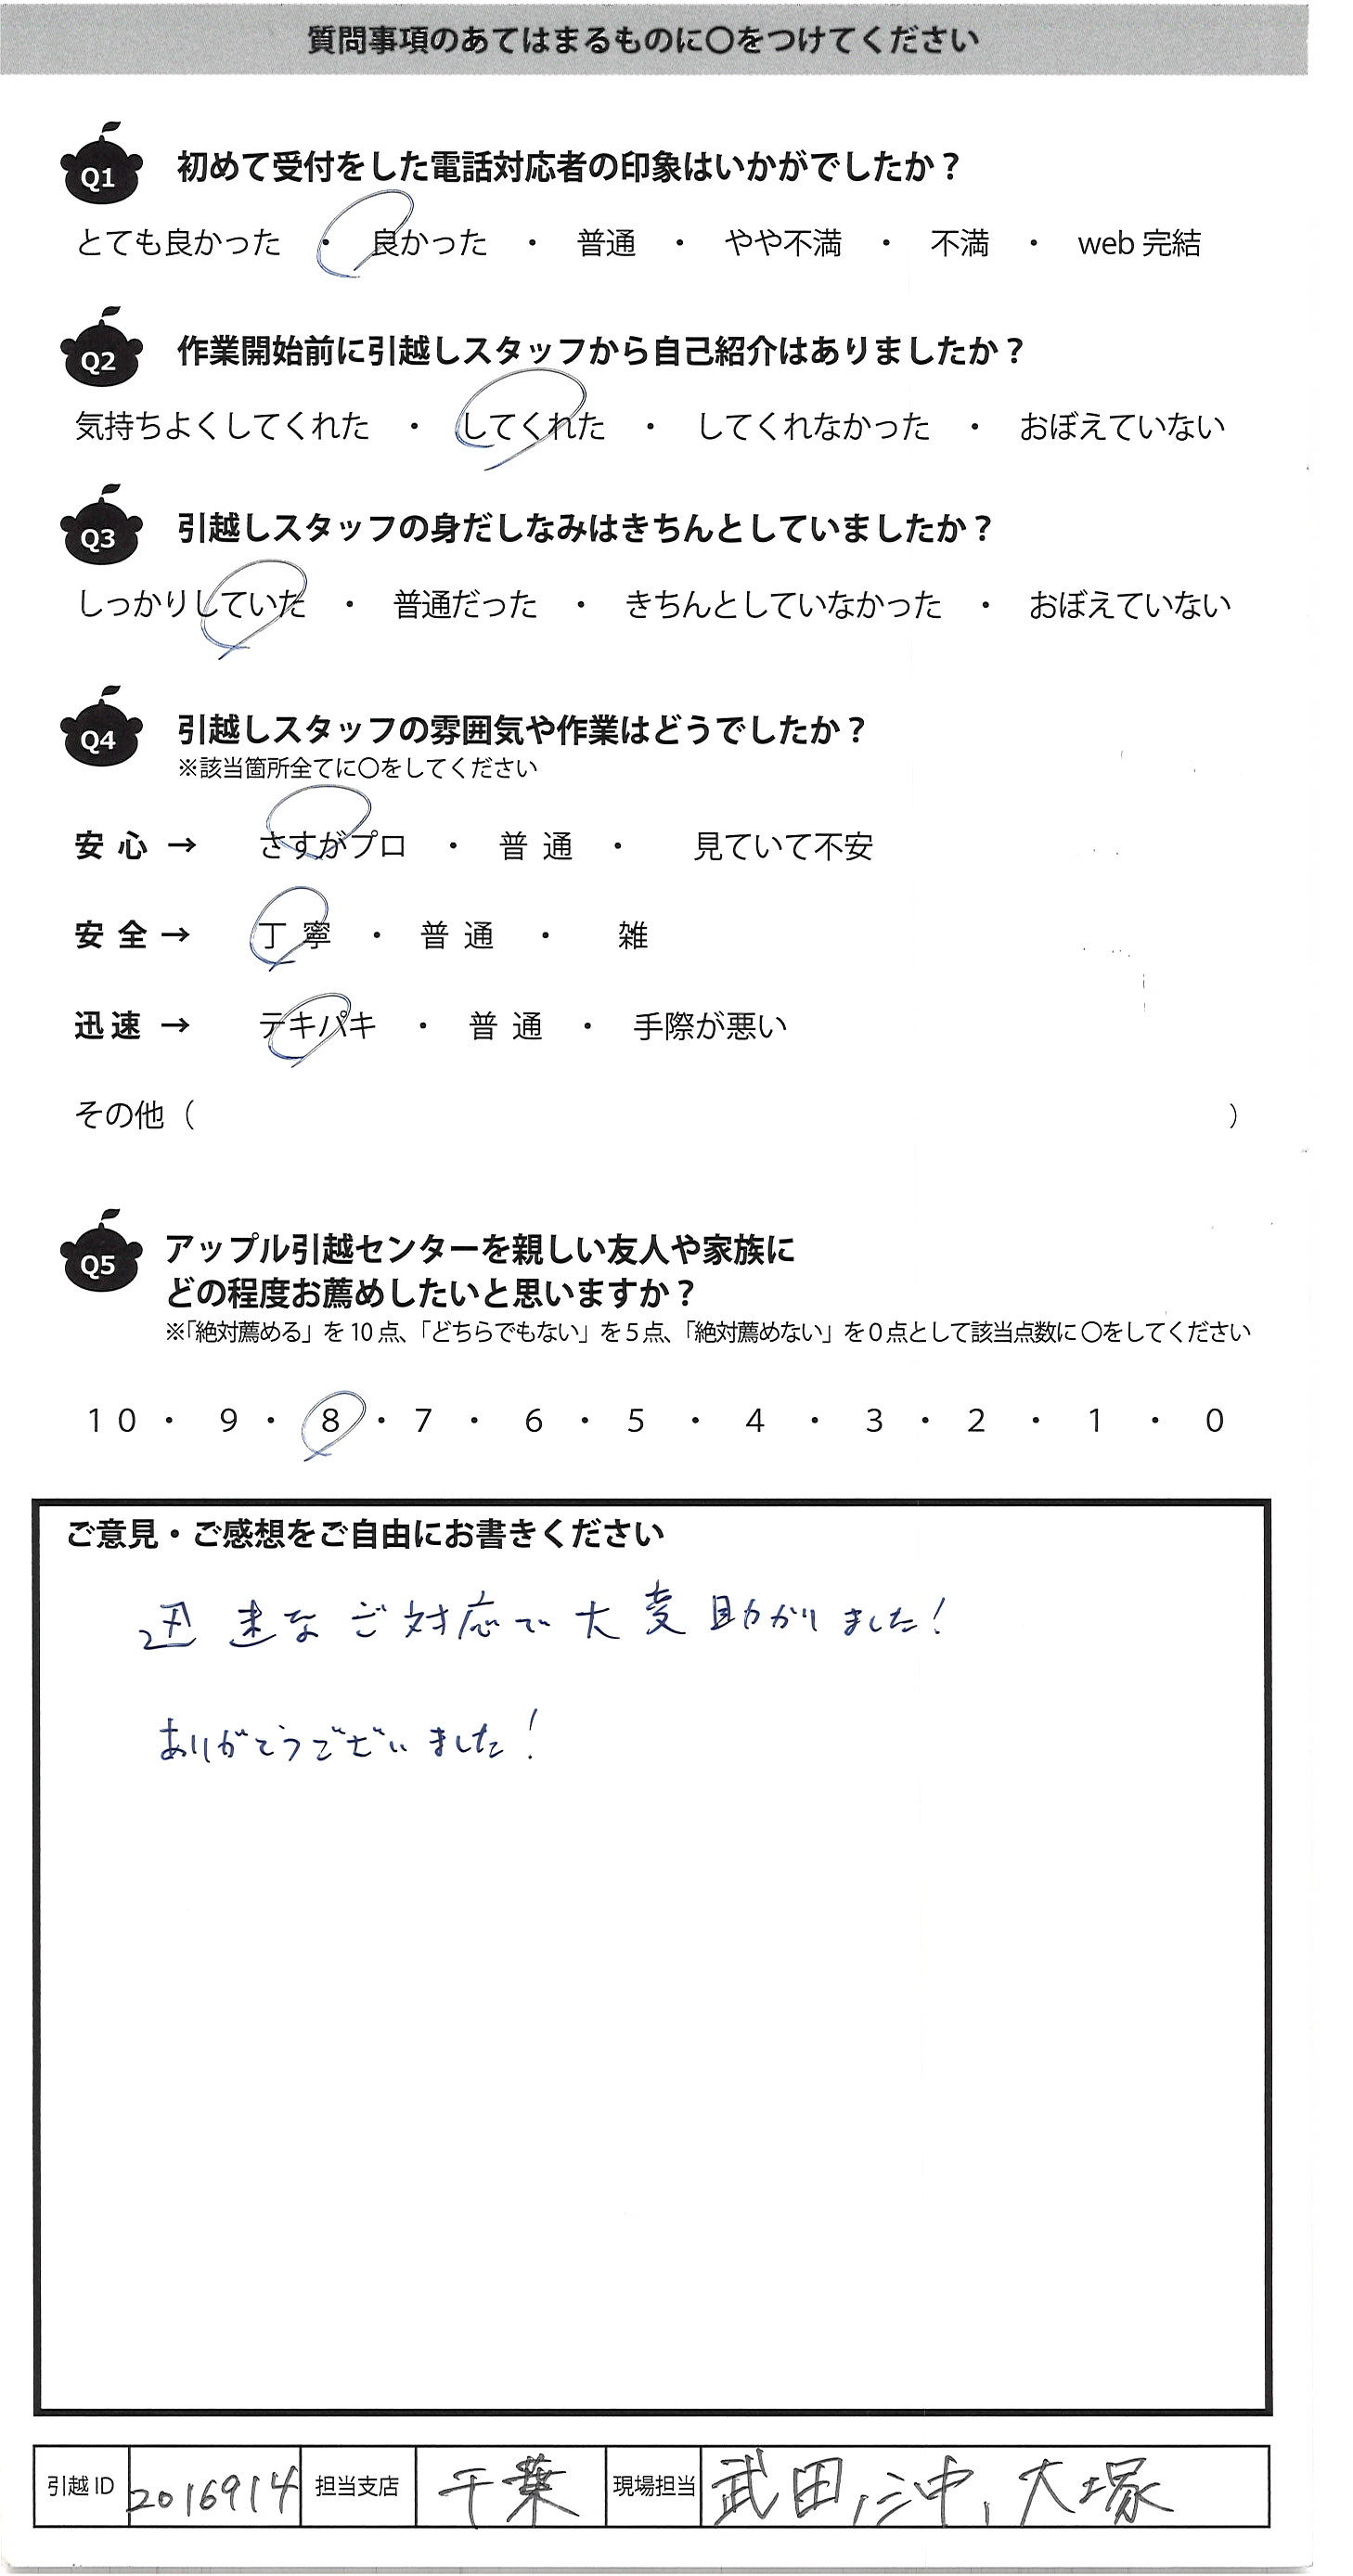 質問事項のあてはまるものに〇をつけてください
Q1 初めて受付をした電話対応者の印象はいかがでしたか？
とても良かった ・ 良かった ・ 普通 ・ やや不満 ・ 不満 ・ web 完結
Q2 作業開始前に引越しスタッフから自己紹介はありましたか？
気持ちよくしてくれた ・ してくれた ・ してくれなかった ・ おぼえていない
Q3 引越しスタッフの身だしなみはきちんとしていましたか？
しっかりしていた ・ 普通だった ・ きちんとしていなかった ・ おぼえていない
Q4 引越しスタッフの雰囲気や作業はどうでしたか？
※該当箇所全てに〇をしてください
安心 → さすがプロ ・ 普通 ・ 見ていて不安
安全 → 丁寧 ・ 普通 ・ 雑
迅速 → テキパキ ・ 普通 ・ 手際が悪い
その他（ ）
Q5 アップル引越センターを親しい友人や家族に
どの程度お薦めしたいと思いますか？
※「絶対薦める」を 10 点、「どちらでもない」を 5 点、「絶対薦めない」を 0 点として該当点数に〇をしてください
10 ・ 9 ・ 8 ・ 7 ・ 6 ・ 5 ・ 4 ・ 3 ・ 2 ・ 1 ・ 0
ご意見・ご感想をご自由にお書きください
迅速なご対応で大変助かりました！
ありがとうございました！
引越 ID 2016914 担当支店 千葉 現場担当 武田, 沖, 大塚